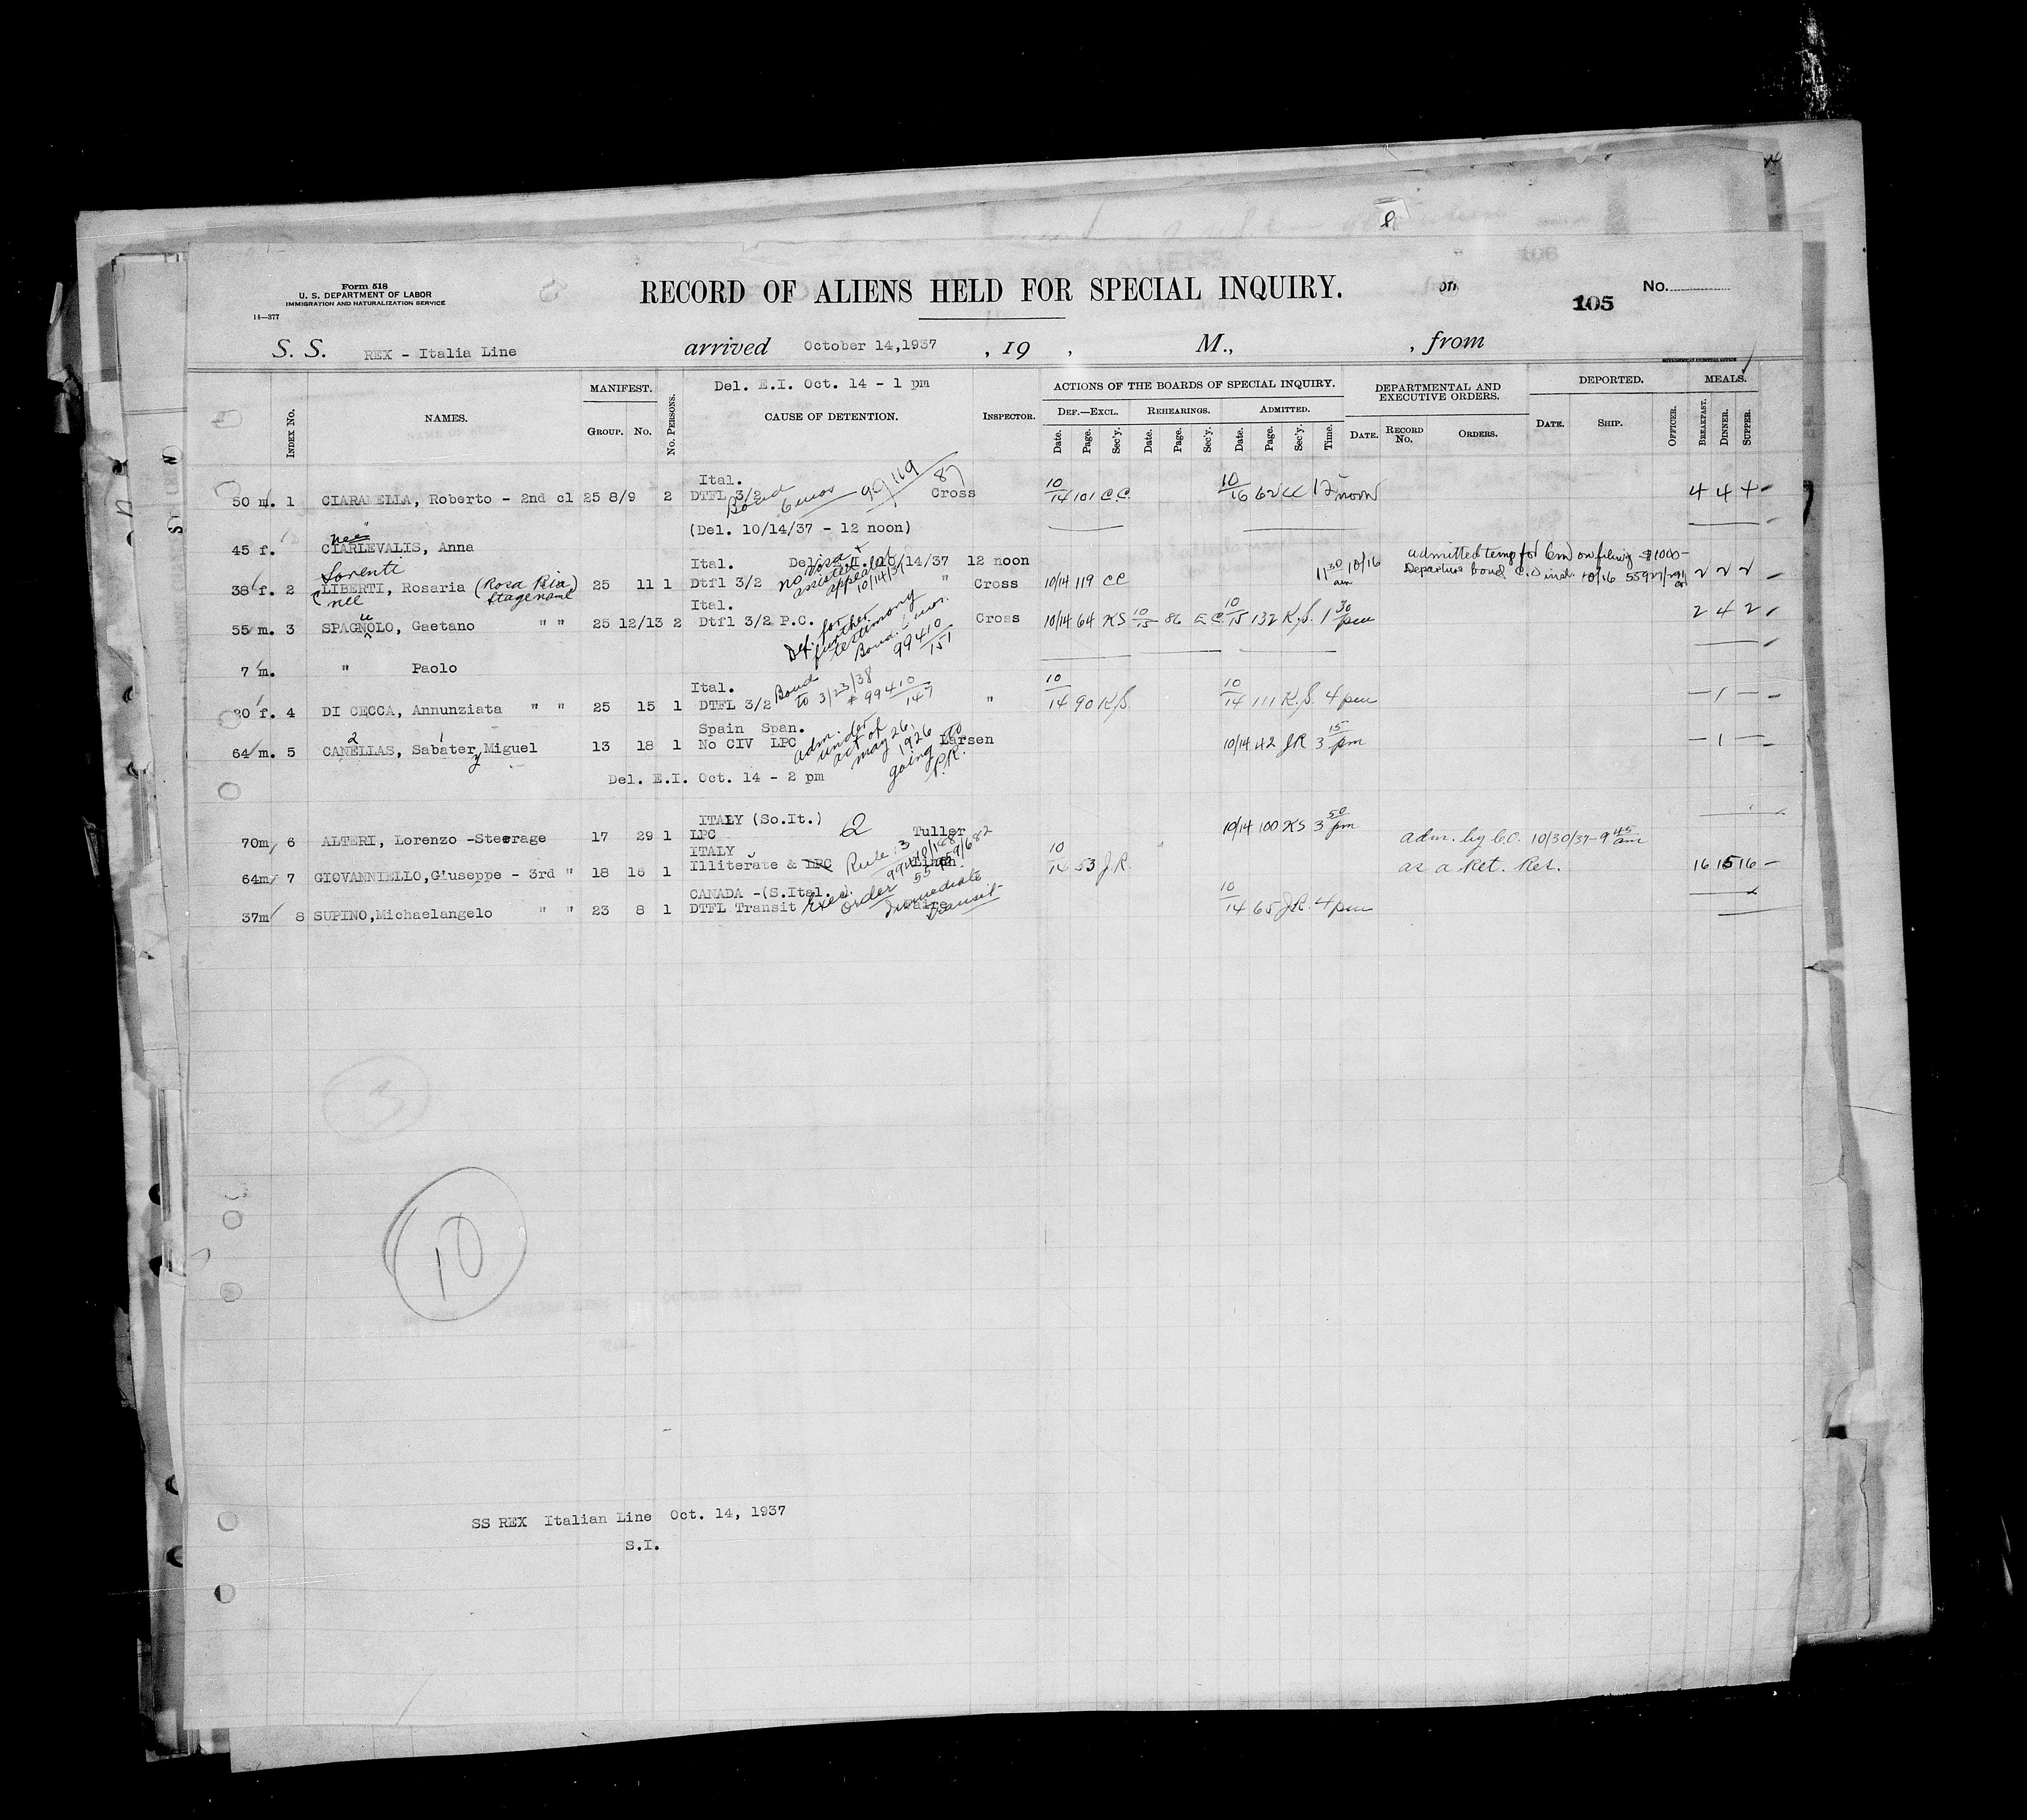 8
Form 518
U. S. DEPARTMENT OF LABOR
IMMIGRATION AND NATURALIZATION SERVICE
14—377
RECORD OF ALIENS HELD FOR SPECIAL INQUIRY.
on
105
No.
S. S. REX - Italia Line arrived October 14,1937 , 19 , M., , from
INDEX No. NAMES. MANIFEST. GROUP. No. No. PERSONS. Del. E.I. Oct. 14 - 1 pm CAUSE OF DETENTION. INSPECTOR. ACTIONS OF THE BOARDS OF SPECIAL INQUIRY. DEF.—EXCL. Date. Page. Sec'y. REHEARINGS. Date. Page. Sec'y. ADMITTED. Date. Page. Sec'y. Time. DEPARTMENTAL AND EXECUTIVE ORDERS. DATE. RECORD No. ORDERS. DEPORTED. DATE. SHIP. OFFICER. MEALS. BREAKFAST. DINNER. SUPPER.
Ital.
50 m. 1 CIARAMELLA, Roberto - 2nd cl 25 8/9 2 DTFL 3/2 Bond 6 mos 99119/87 Cross 10/14 101 C.C. 10/16 62 CC 12 noon 4 4 4
(Del. 10/14/37 - 12 noon)
nee
45 f. CIARLEVALIS, Anna
Ital. Del. E.I. 10/14/37 12 noon
Sorenti
38 f. 2 LIBERTI, Rosaria (Rosa Ria) 25 11 1 Dtfl 3/2 no visa assisted appealed 10/14/37 " Cross 10/14 119 CC 11 30 am 10/16 admitted temp for 6m on filing $1000-
nee Stage name Departure bond 10/16 2 2 2
Ital.
55 m. 3 SPAGNOLO, Gaetano " " 25 12/13 2 Dtfl 3/2 P.C. Cross 10/14 64 KS 10/15 86 EC 10/15 132 K.S. 1 30 pm 2 4 2
Def. for further testimony
Bond 6 mos. 99410/151
7 m. " Paolo
Ital.
20 f. 4 DI CECCA, Annunziata " " 25 15 1 DTFL 3/2 Bond to 3/23/38 # 99410/147 " 10/14 90 K.S. 10/14 111 K.S. 4 pm - 1 -
Spain Span.
64 m. 5 CANELLAS, Sabater y Miguel 13 18 1 No CIV LPC Larsen 10/14 42 JR 3 15 pm - 1 -
adm. under act of May 26, 1926 going to P.R.
Del. E.I. Oct. 14 - 2 pm
ITALY (So.It.)
70m 6 ALTERI, Lorenzo -Steerage 17 29 1 LPC Tuller 10/14 100 KS 3 50 pm
ITALY adm. by C.O. 10/30/37-9 45 am
64m 7 GIOVANNIELLO,Giuseppe - 3rd " 18 16 1 Illiterate & LPC Rule 3 10/14 53 J.R. as a Ret. Res. 16 15 16
CANADA -(S.Ital.)
37m 8 SUPINO,Michaelangelo " " 23 8 1 DTFL Transit Exec. Order Immediate Transit 10/14 65 J.R. 4 pm
3
10
SS REX Italian Line Oct. 14, 1937
S.I.